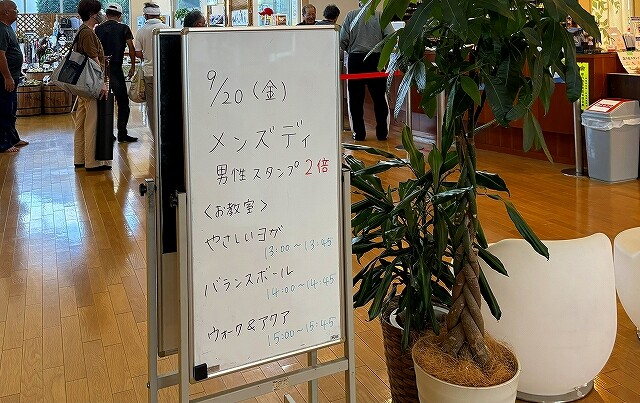 9/20（金）
メンズデイ
男性スタンプ2倍
＜お教室＞
やさしいヨガ
13:00〜13:45
バランスボール
14:00〜14:45
ウォーク&アクア
15:00〜15:45